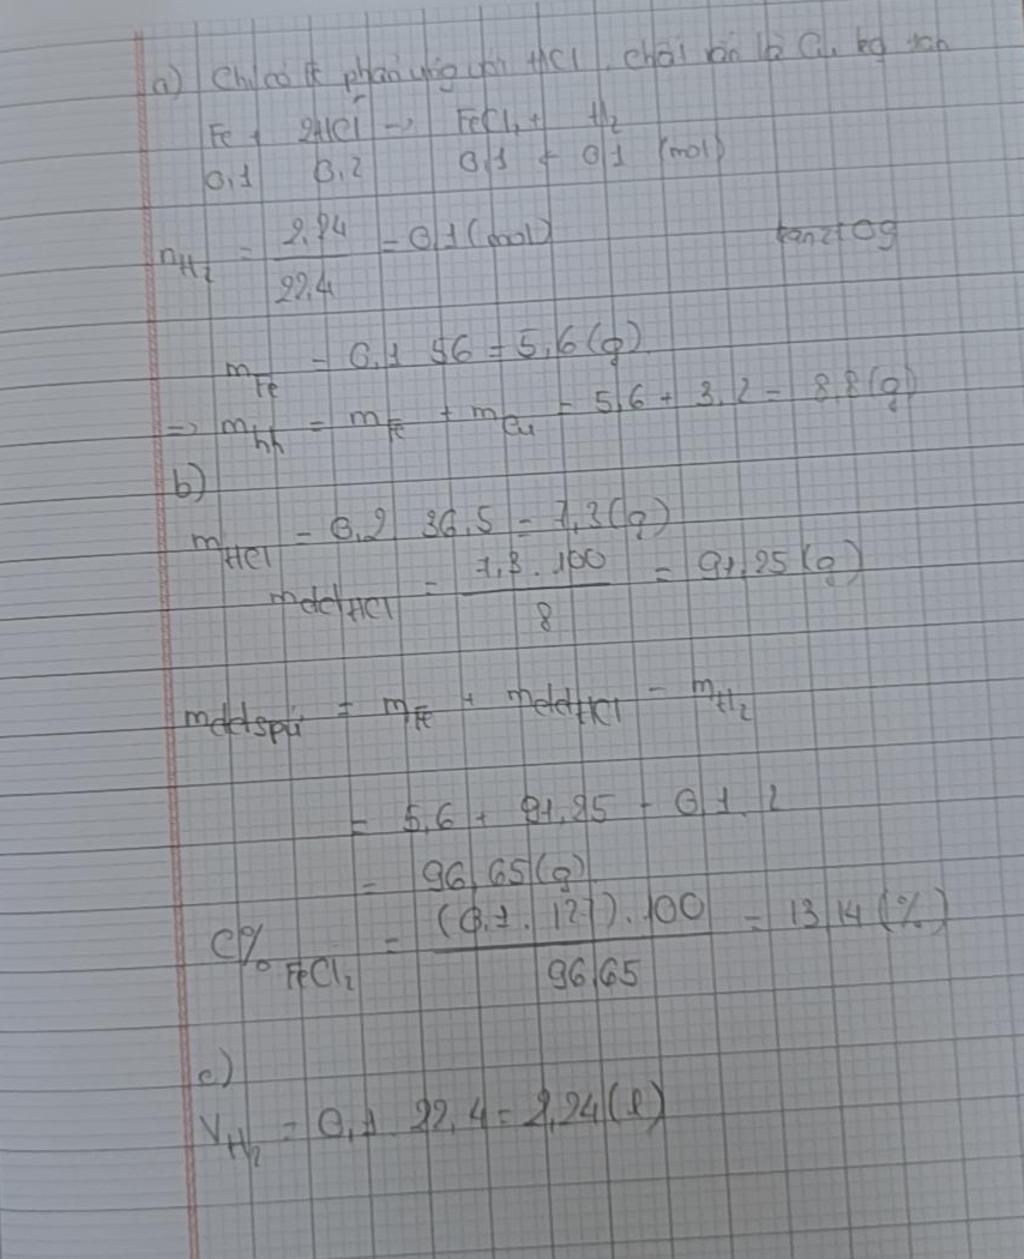 a) Chỉ có Fe phản ứng với HCl, chất rắn là Cu kg tan
Fe + 2HCl -> FeCl₂ + H₂
0,1 0,2 0,1 0,1 (mol)
nH₂ = 2,24 / 22,4 = 0,1 (mol)
mFe = 0,1 . 56 = 5,6 (g)
=> mhh = mFe + mCu = 5,6 + 3,2 = 8,8 (g)
b)
mHCl = 0,2 . 36,5 = 7,3 (g)
mddHCl = 7,3 . 100 / 8 = 91,25 (g)
mddspứ = mFe + mddHCl - mH₂
= 5,6 + 91,25 - 0,1 . 2
= 96,65 (g)
C% FeCl₂ = (0,1 . 127) . 100 / 96,65 = 13,14 (%)
c)
VH₂ = 0,1 . 22,4 = 2,24 (l)